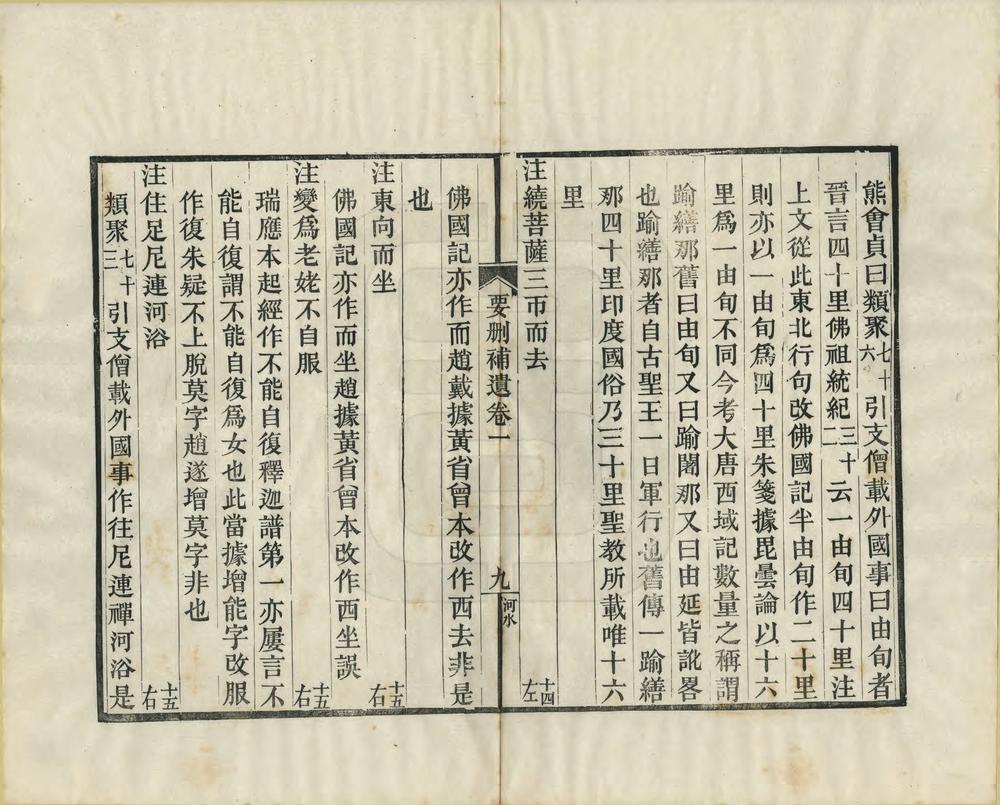 熊會貞曰類聚七十六引支僧載外國事曰由旬者
晉言四十里佛祖統紀三十二云一由旬四十里注
上文從此東北行句改佛國記半由旬作二十里
則亦以一由旬爲四十里朱箋據毘曇論以十六
里爲一由旬不同今考大唐西域記數量之稱謂
踰繕那舊曰由旬又曰踰闍那又曰由延皆訛畧
也踰繕那者自古聖王一日軍行也舊傳一踰繕
那四十里印度國俗乃三十里聖教所載唯十六
里
注繞菩薩三帀而去 十四左
要刪補遺卷一 九 河水
佛國記亦作而趙戴據黃省曾本改作西去非是
也
注東向而坐 十五右
佛國記亦作而坐趙據黃省曾本改作西坐誤
注變爲老姥不自服 十五右
瑞應本起經作不能自復釋迦譜第一亦屢言不
能自復謂不能自復爲女也此當據增能字改服
作復朱疑不上脫莫字趙遂增莫字非也
注住足尼連河浴 十五右
類聚七十三引支僧載外國事作往尼連禪河浴是